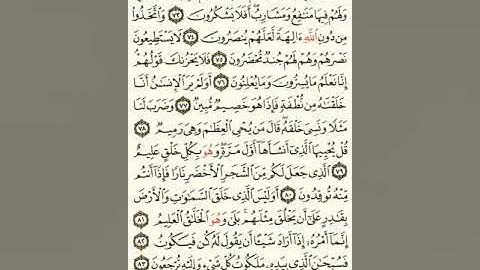 وَلَهُمْ فِيهَا مَنَٰفِعُ وَمَشَارِبُ أَفَلَا يَشْكُرُونَ ٧٣ وَاتَّخَذُوا
مِن دُونِ اللَّهِ ءَالِهَةً لَّعَلَّهُمْ يُنصَرُونَ ٧٤ لَا يَسْتَطِيعُونَ
نَصْرَهُمْ وَهُمْ لَهُمْ جُندٌ مُّحْضَرُونَ ٧٥ فَلَا يَحْزُنكَ قَوْلُهُمْ
إِنَّا نَعْلَمُ مَا يُسِرُّونَ وَمَا يُعْلِنُونَ ٧٦ أَوَلَمْ يَرَ الْإِنسَٰنُ أَنَّا
خَلَقْنَٰهُ مِن نُّطْفَةٍ فَإِذَا هُوَ خَصِيمٌ مُّبِينٌ ٧٧ وَضَرَبَ لَنَا
مَثَلًا وَنَسِيَ خَلْقَهُ قَالَ مَن يُحْيِ الْعِظَٰمَ وَهِيَ رَمِيمٌ ٧٨
قُلْ يُحْيِيهَا الَّذِي أَنشَأَهَا أَوَّلَ مَرَّةٍ وَهُوَ بِكُلِّ خَلْقٍ عَلِيمٌ
٧٩ الَّذِي جَعَلَ لَكُم مِّنَ الشَّجَرِ الْأَخْضَرِ نَارًا فَإِذَا أَنتُم
مِّنْهُ تُوقِدُونَ ٨٠ أَوَلَيْسَ الَّذِي خَلَقَ السَّمَٰوَٰتِ وَالْأَرْضَ
بِقَٰدِرٍ عَلَىٰ أَن يَخْلُقَ مِثْلَهُم بَلَىٰ وَهُوَ الْخَلَّٰقُ الْعَلِيمُ ٨١
إِنَّمَا أَمْرُهُ إِذَا أَرَادَ شَيْئًا أَن يَقُولَ لَهُ كُن فَيَكُونُ ٨٢
فَسُبْحَٰنَ الَّذِي بِيَدِهِ مَلَكُوتُ كُلِّ شَيْءٍ وَإِلَيْهِ تُرْجَعُونَ ٨٣